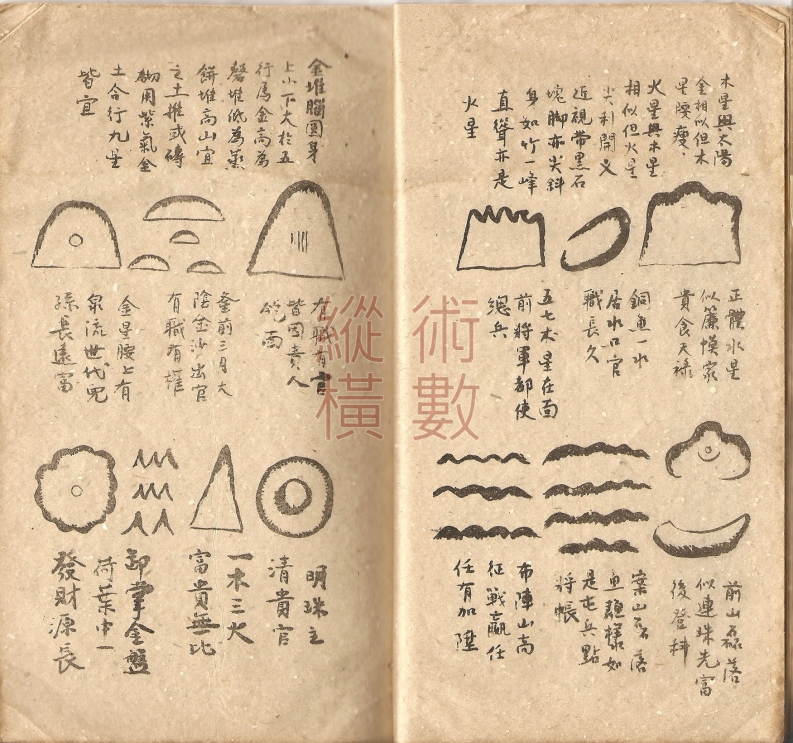 木星與太陽
金相似但木
星腰瘦、
火星與木星
相似但火星
尖利開义
近視帶黑石
塊脚亦尖斜
身如竹一峰
直聳亦是
火星
正體水星
似簾幙家
貴食天祿
銅魚一水
居水口官
職長久
五七木星在面
前將軍都使
總兵
前山磊落
似連珠先富
後登科
案山磊落
魚鱗樣如
是屯兵點
將帳
布陣山高
征戰贏任
任有加陞
金堆腦圓身
上小下大於五
行爲金高為
磬堆低為
餅堆高山宜
之土堆或磚
砌用紫氣金
土合行九星
皆宜
有職有官
皆因貴人
面
前三月大
陰金沙出官
有職有權
金星腰上有
泉流世代兒
孫長遠富
明珠主
清貴官
一木三火
富貴無比
卸掌金盤
荷葉中一
發財源長
術數
縱橫